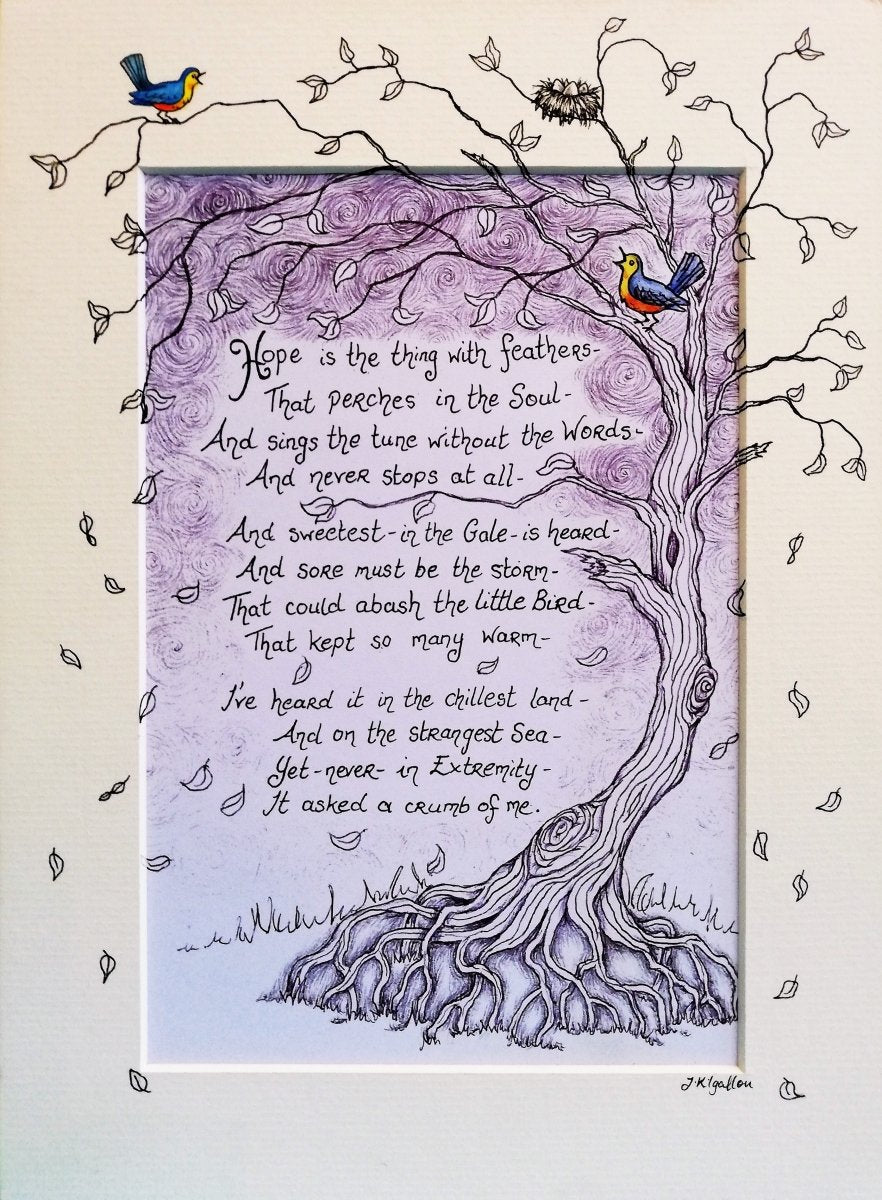 Hope is the thing with feathers-
That perches in the Soul-
And sings the tune without the Words-
And never stops at all-
And sweetest-in the Gale-is heard-
And sore must be the storm-
That could abash the little Bird-
That kept so many warm-
I've heard it in the chillest land-
And on the strangest Sea-
Yet-never-in Extremity-
It asked a crumb of me.